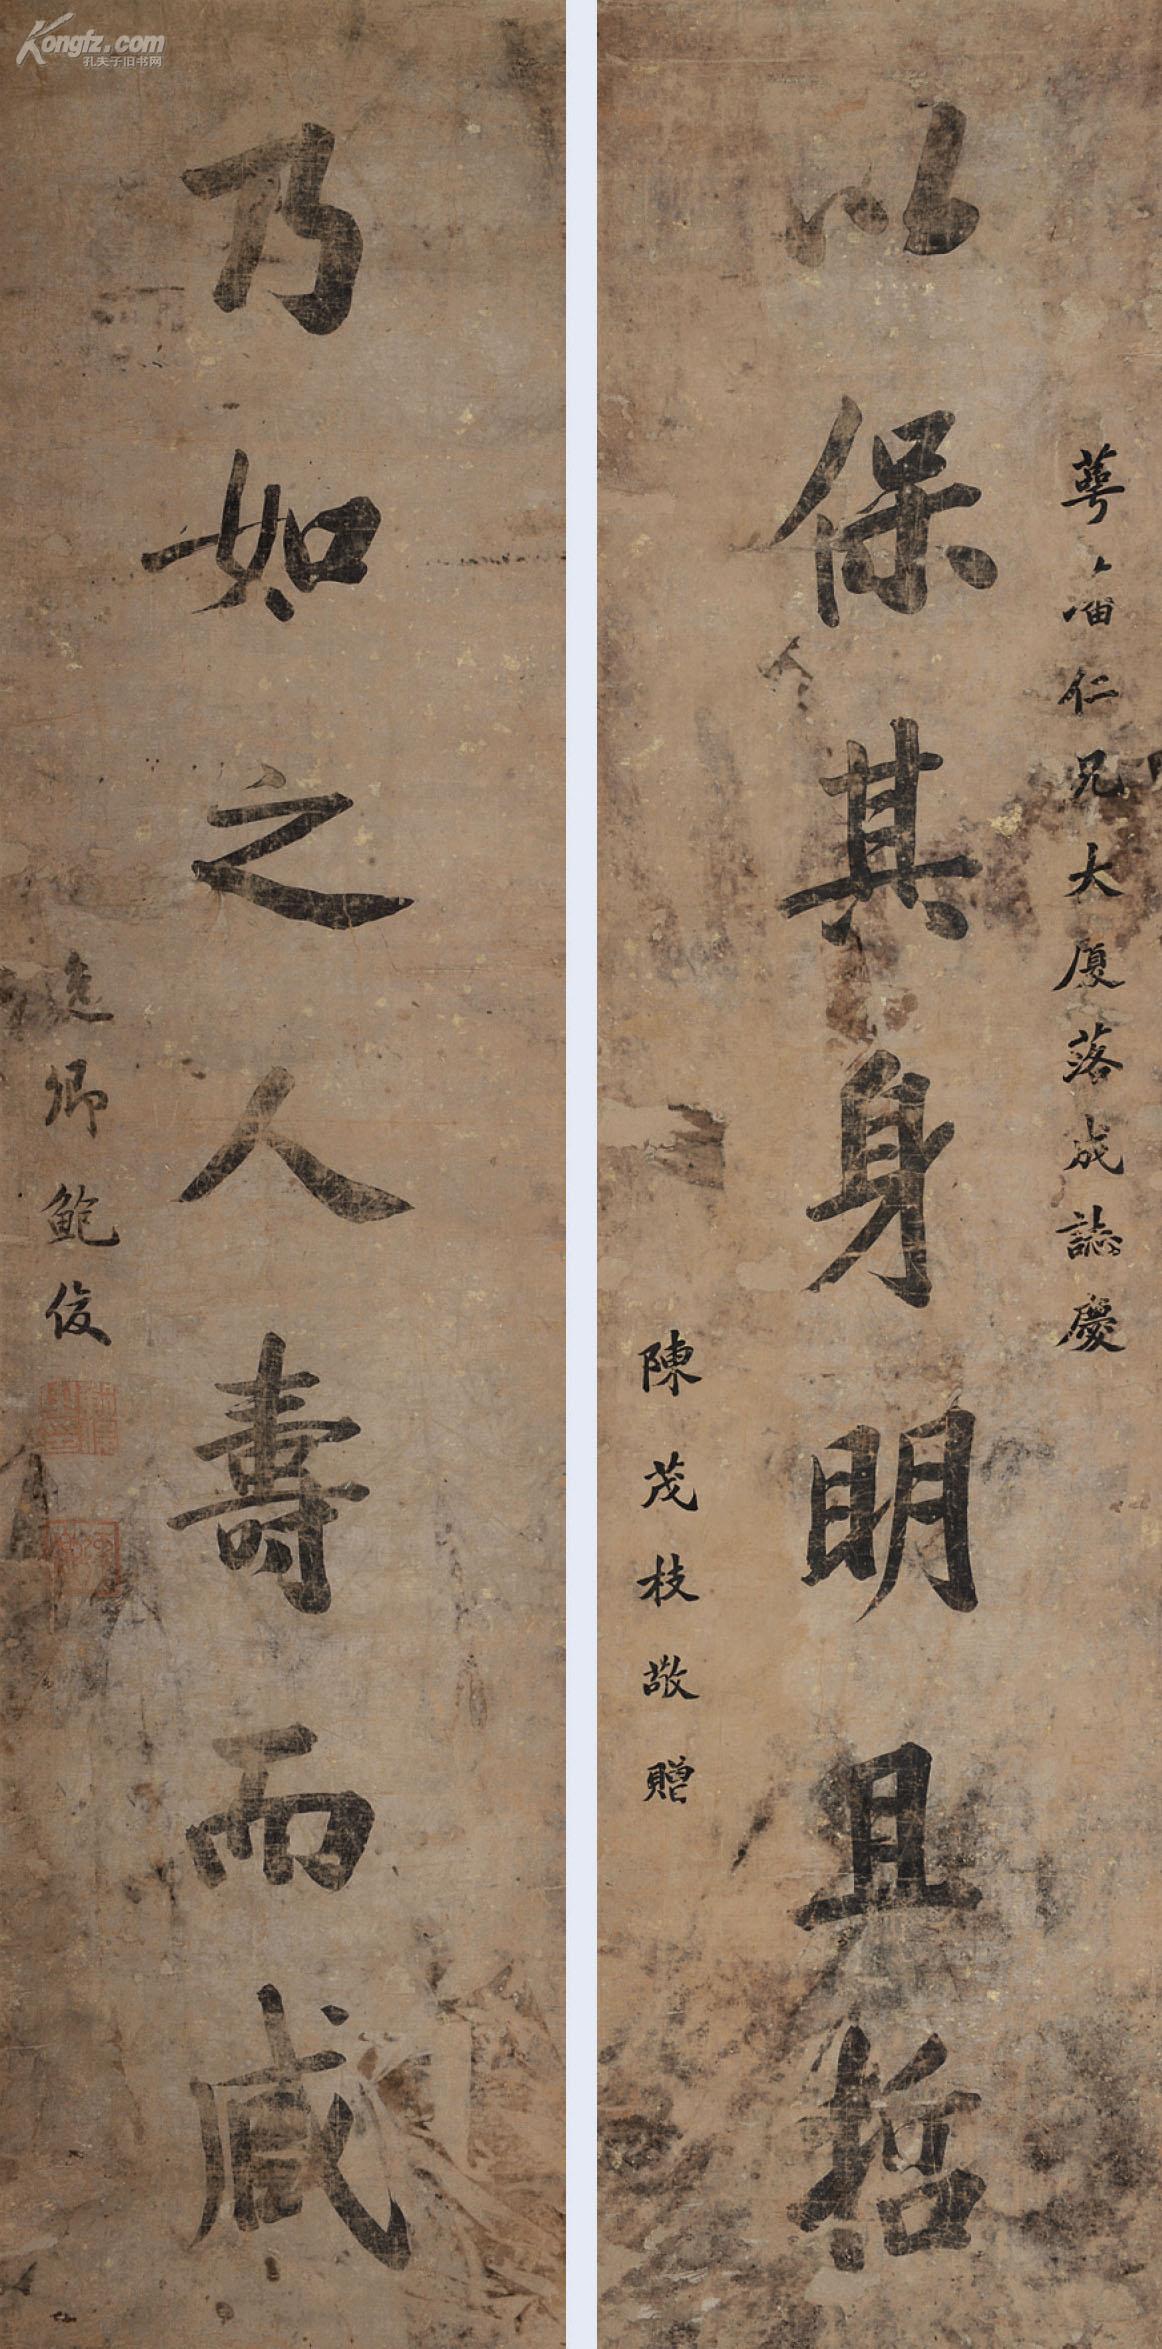 以保其身明且哲
萼庿仁兄大厦落成誌慶
陳茂枝敬贈
乃如之人壽而臧
逸卿鮑俊
Kongfz.com
孔夫子旧书网